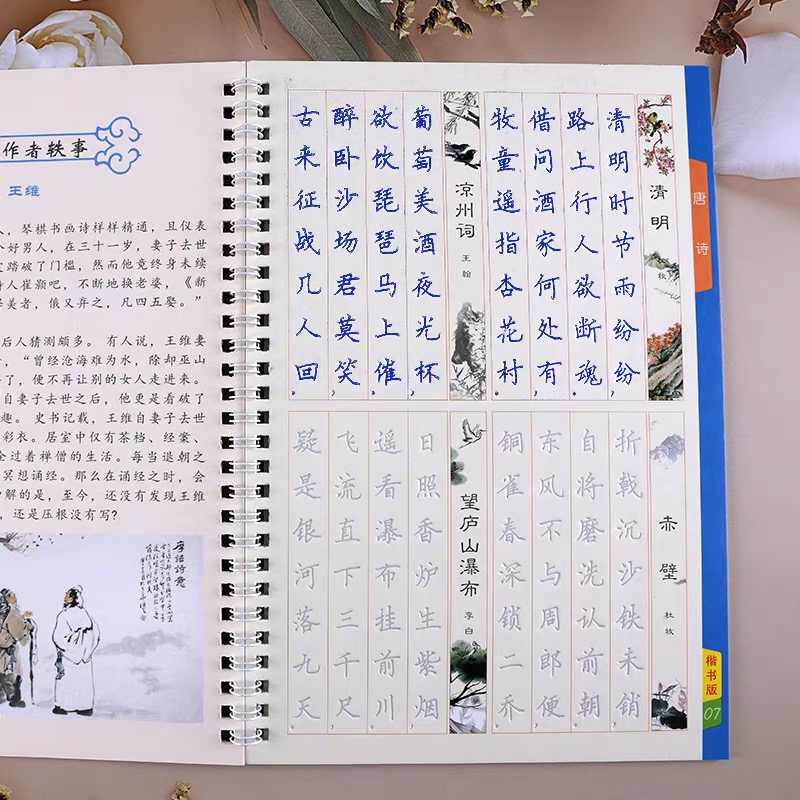 作者轶事
王维
人，琴棋书画诗样样精通，且仪表
个好男人，在三十一岁，妻子去世
踏破了门槛，然而他竟终身未续
诗人崔颢吧，不断地换老婆，《新
择美者，俄又弃之，凡四五娶。”
后人猜测颇多。有人说，王维妻
，“曾经沧海难为水，除却巫山
了，便不再让别的女人走进来。
自妻子去世之后，他更是看破了
趣。史书记载，王维自妻子去世
彩衣。居室中仅有茶档、经案、
全过着禅僧的生活。每当退朝之
冥想诵经。那么在诵经之时，会
解的是，至今，还没有发现王维
，还是压根没有写?
摩诘诗意
唐诗
清明
牧
清明时节雨纷纷，
路上行人欲断魂。
借问酒家何处有，
牧童遥指杏花村。
凉州词
王翰
葡萄美酒夜光杯，
欲饮琵琶马上催。
醉卧沙场君莫笑，
古来征战几人回。
赤壁
杜牧
折戟沉沙铁未销，
自将磨洗认前朝。
东风不与周郎便，
铜雀春深锁二乔。
望庐山瀑布
李白
日照香炉生紫烟，
遥看瀑布挂前川。
飞流直下三千尺，
疑是银河落九天。
楷书版
07